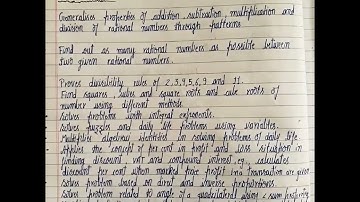 Generalises properties of addition, subtraction, multiplication and
division of rational numbers through patterns
Find out as many rational numbers as possible between
two given rational numbers.
Proves divisibility rules of 2,3,9,5,6,9 and 11.
Finds squares, cubes and square roots and cube roots of
number using different methods.
Solves problems with integral exponents.
Solves puzzles and daily life problems using variables.
Multiplies algebraic identities in solving problems of daily life
Applies the concept of per cent in profit and loss situation in
finding discount VAT and compound interest eg., calculates
discount per cent when marked price profit in a transaction are given
Solves problem based on direct and inverse proportions.
Solves problem related to angle of a quadrilateral using < sum property